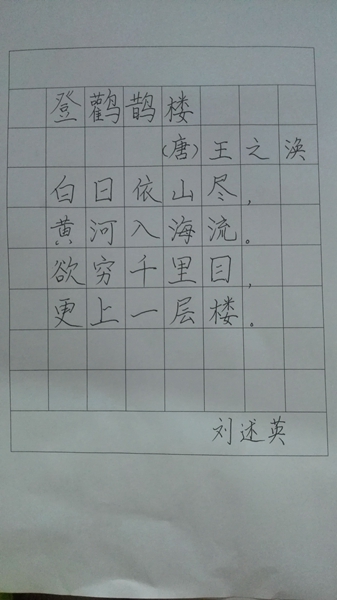 登鹳鹊楼
(唐)王之涣
白日依山尽,
黄河入海流。
欲穷千里目,
更上一层楼。
刘述英